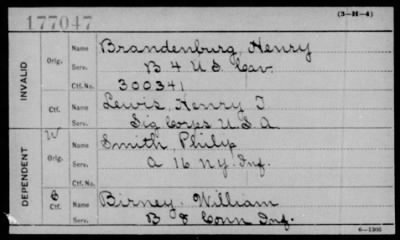 177047
(3-H-4)
INVALID
Orig.
Name Brandenburg, Henry
Serv. B 4 U.S. Cav.
Ctf. No. 300341
Ctf.
Name Lewis, Henry T
Serv. Sig Corps U.S.A.
DEPENDENT
W
Orig.
Name Smith, Philip
Serv. A 16 N.Y. Inf.
Ctf. No.
C
Ctf.
Name Birney, William
Serv. B 8 Conn Inf.
6-1305